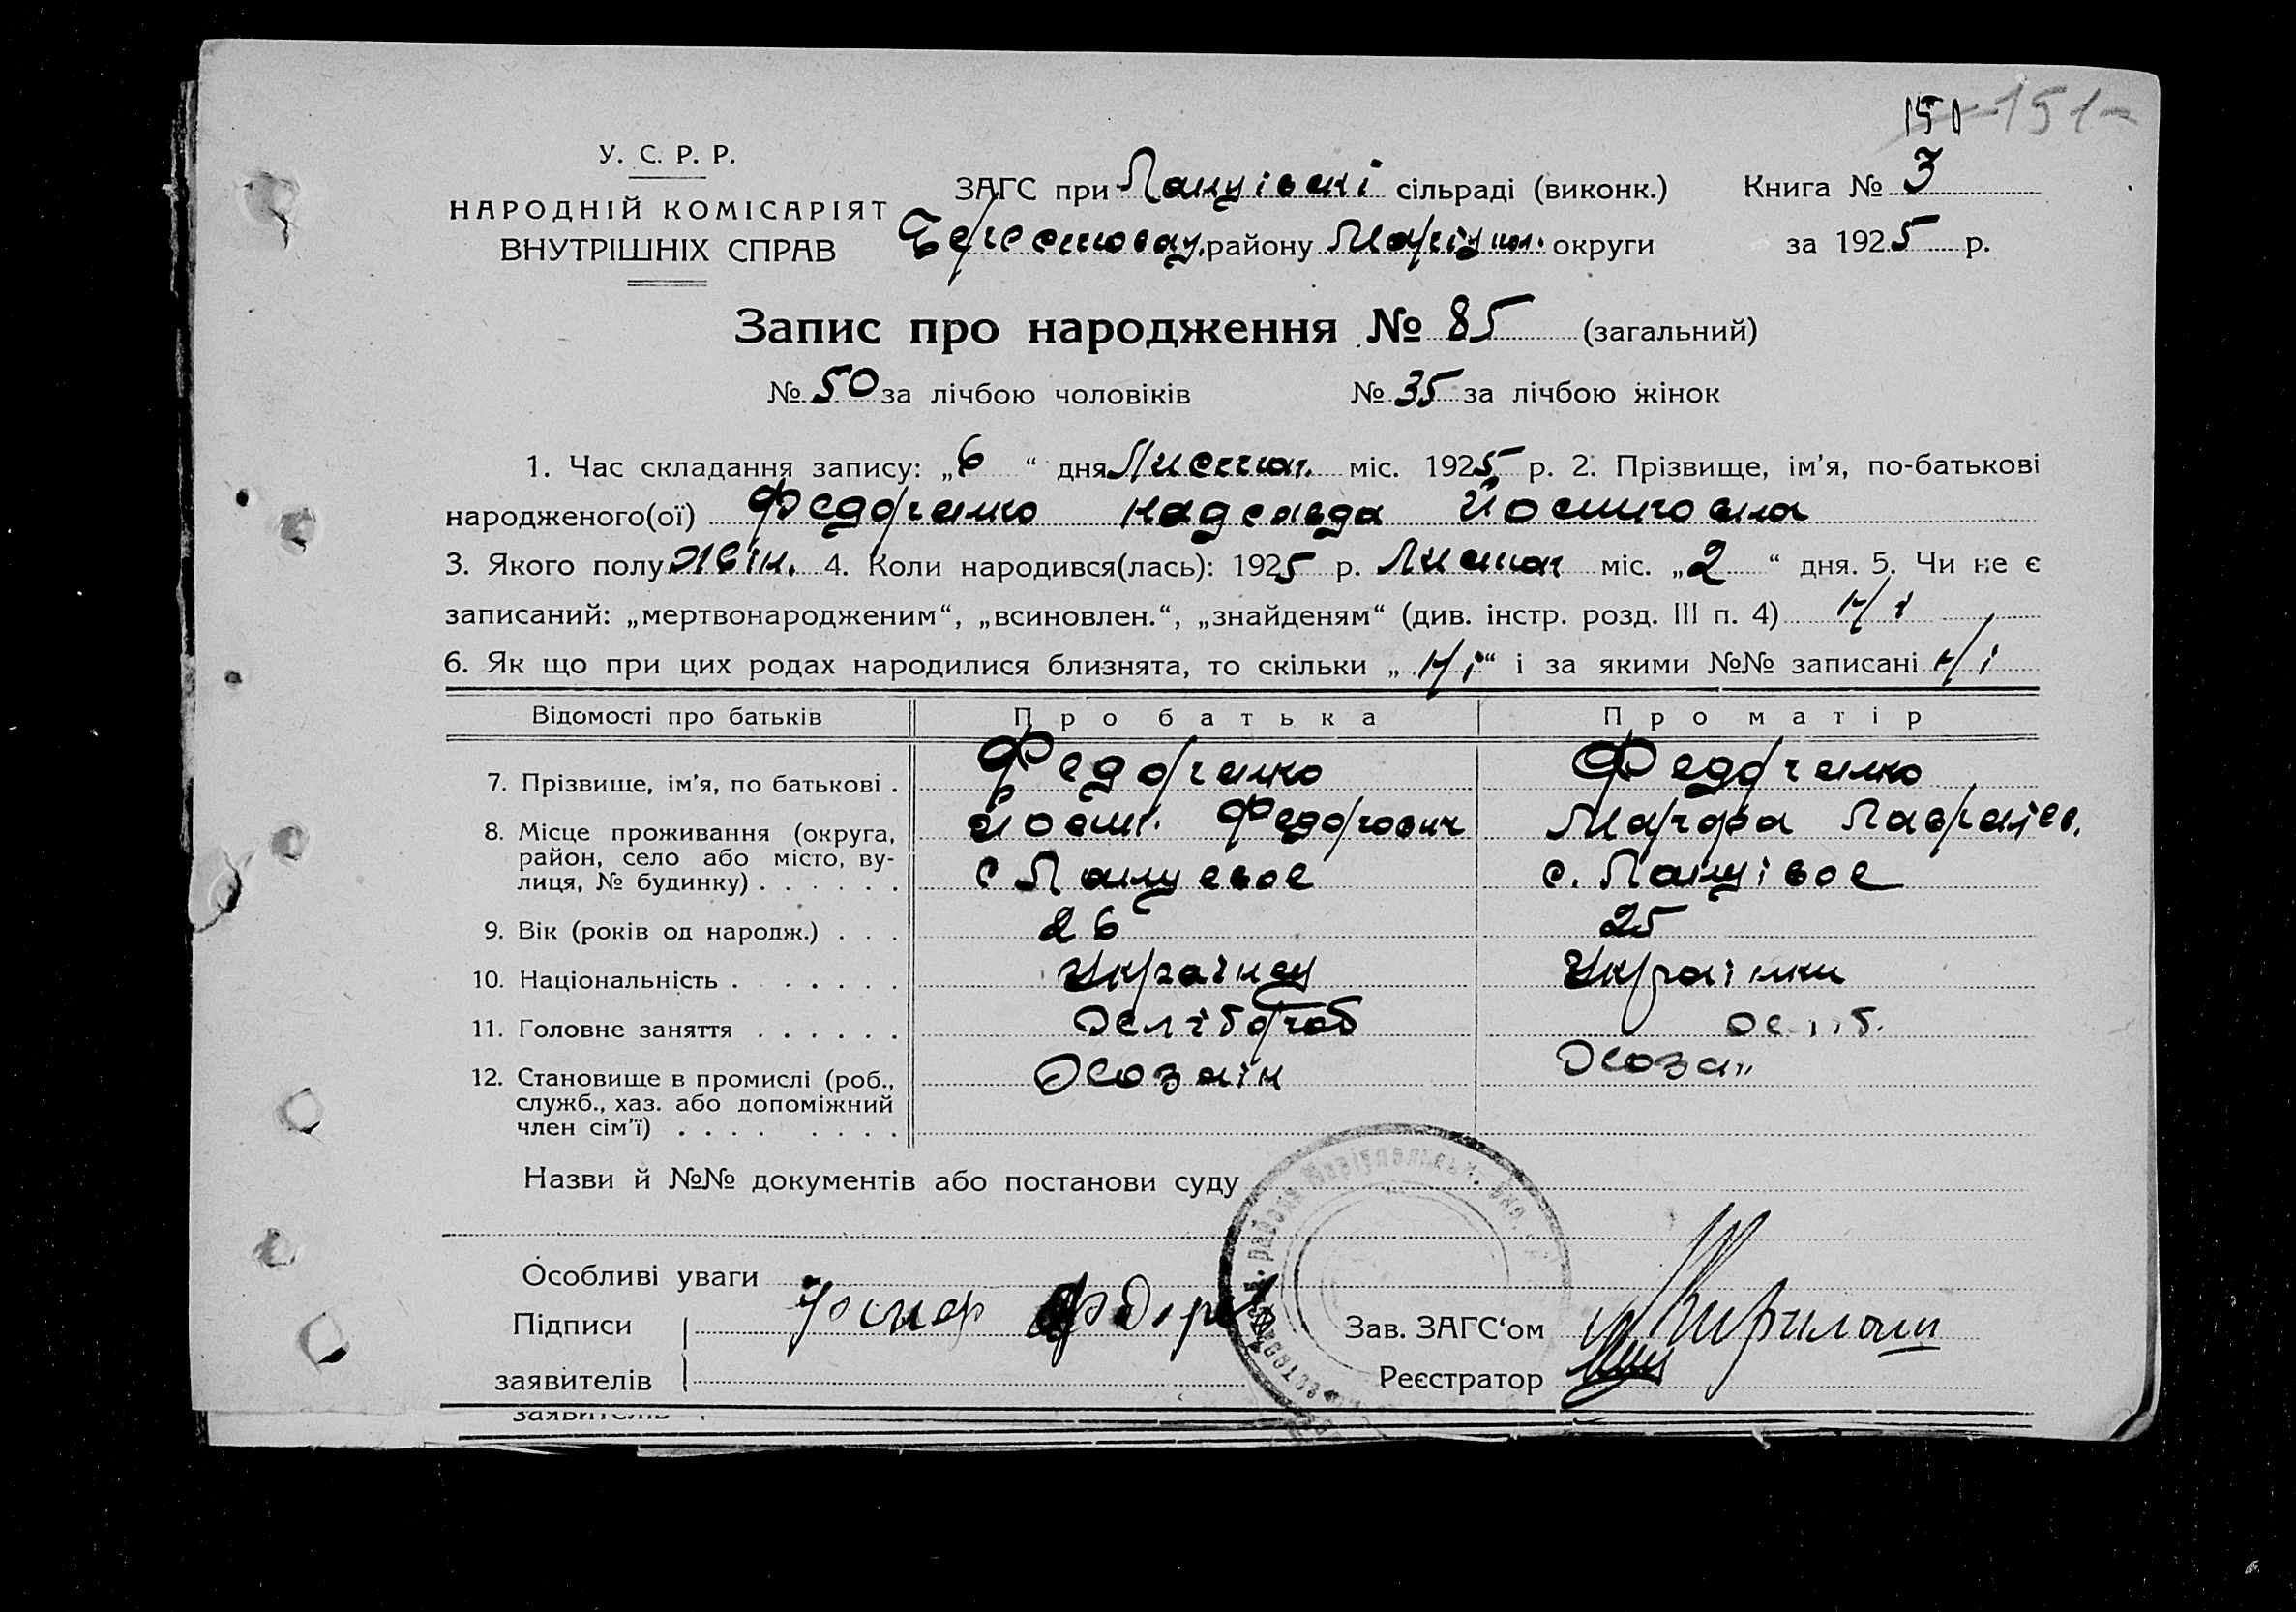 150 151
У. С. Р. Р.
НАРОДНІЙ КОМІСАРІЯТ
ВНУТРІШНІХ СПРАВ
ЗАГС при Ланцівскі сільраді (виконк.) Книга № 3
Берестовец. району Маріупол. округи за 1925 р.
Запис про народження № 85 (загальний)
№ 50 за лічбою чоловіків № 35 за лічбою жінок
1. Час складання запису: „6“ дня Листоп. міс. 1925 р. 2. Прізвище, ім’я, по-батькові
народженого(ої) Федорченко Надежда
3. Якого полу жін. 4. Коли народився(лась): 1925 р. Листоп міс. „2“ дня. 5. Чи не є
записаний: „мертвонародженим“, „всиновлен.“, „знайденям“ (див. інстр. розд. III п. 4) Ні
6. Як що при цих родах народилися близнята, то скільки „Ні“ і за якими №№ записані Ні
Відомості про батьків Про батька Про матір
7. Прізвище, ім’я, по батькові . Федорченко Федорченко
Федорович Марфа
8. Місце проживання (округа,
район, село або місто, ву-
лиця, № будинку) . . . . . .
9. Вік (років од народж.) . . . 26 25
10. Національність . . . . . . . Українец Українки
11. Головне заняття . . . . . . Хлібороб
12. Становище в промислі (роб., Хозаїн Хозаи
служб., хаз. або допоміжний
член сім’ї) . . . . . . . .
Назви й №№ документів або постанови суду
Особливі уваги
Підписи
заявителів
Зав. ЗАГС‘ом
Реєстратор
заявителів